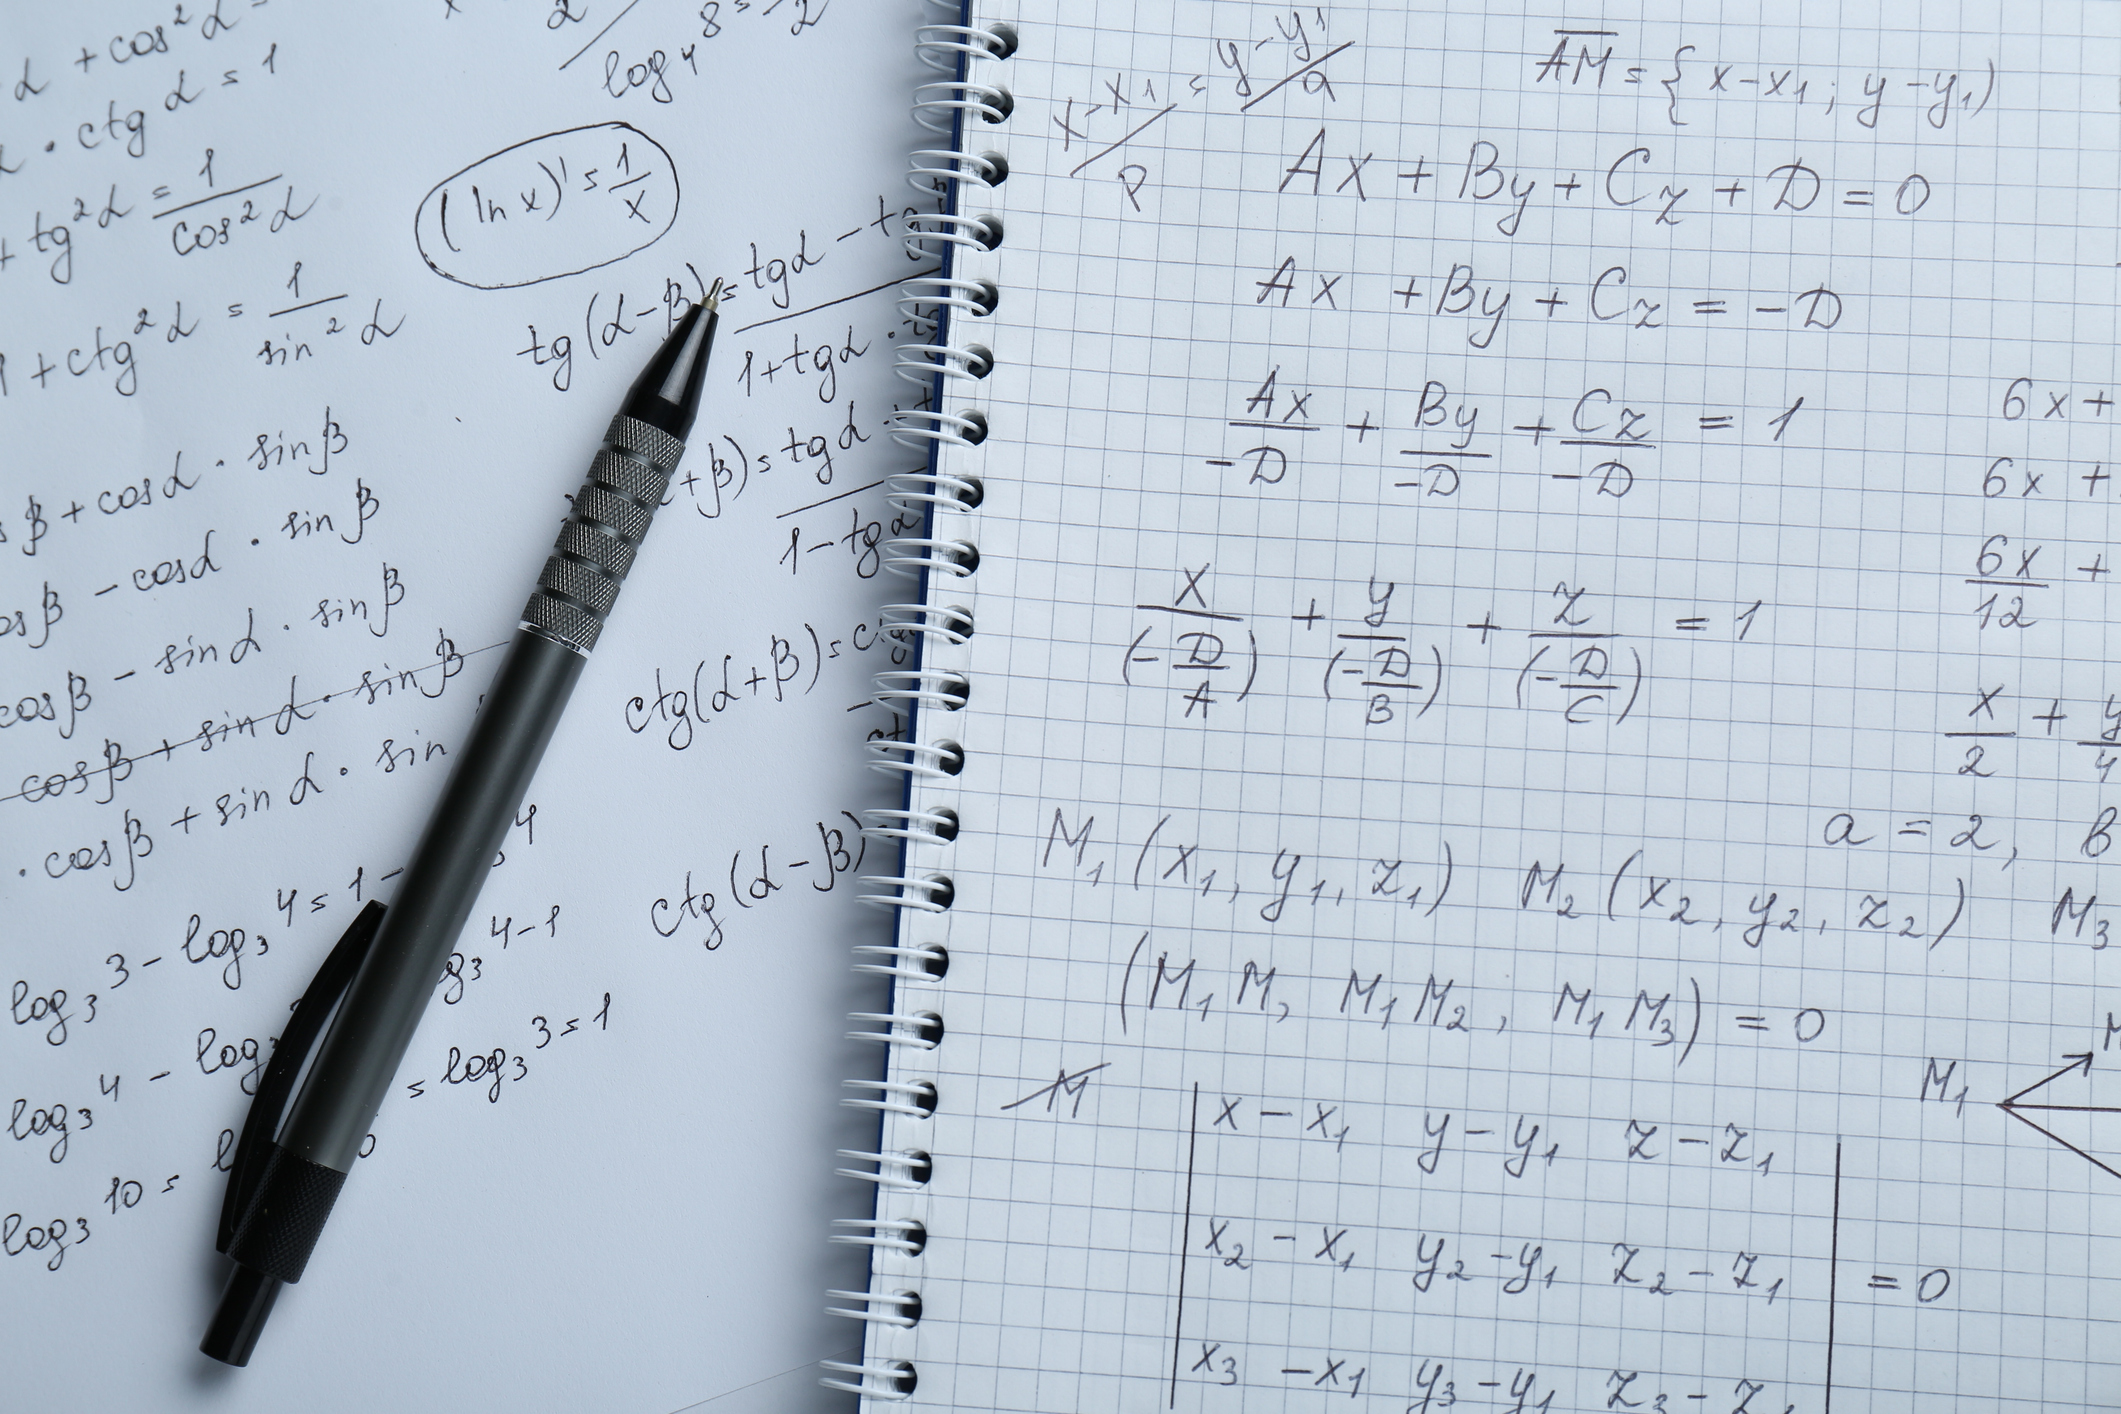 α + cos²α =
· ctg α = 1
+ tg²α = 1/cos²α
1 + ctg²α = 1/sin²α
β + cosα · sinβ
cosβ - cosα · sinβ
cosβ - sinα · sinβ
cosβ + sinα · sinβ
· cosβ + sinα · sin
log₃3 - log₃4 = 1 - 4
log₃4 - log₃ 4-1
log₃10 = = log₃3 = 1
2
log₄8 = 2
(ln x)' = 1/x
tg(α-β) = tgα - t
1 + tgα ·
+β) = tgα
1 - tgα
ctg(α+β) = c
ctg(α-β)
x-x₁/P = y-y'/a
AM = {x-x₁; y-y₁)
Ax + By + Cz + D = 0
Ax + By + Cz = -D
Ax/-D + By/-D + Cz/-D = 1
x/(-D/A) + y/(-D/B) + z/(-D/C) = 1
6x +
6x +
6x/12 +
x/2 + y/4
a = 2, b
M₁(x₁, y₁, z₁) M₂(x₂, y₂, z₂) M₃
(M₁M, M₁M₂, M₁M₃) = 0
M
x - x₁ y - y₁ z - z₁
x₂ - x₁ y₂ - y₁ z₂ - z₁ = 0
x₃ - x₁ y₃ - y₁ z₃ - z₁
M₁